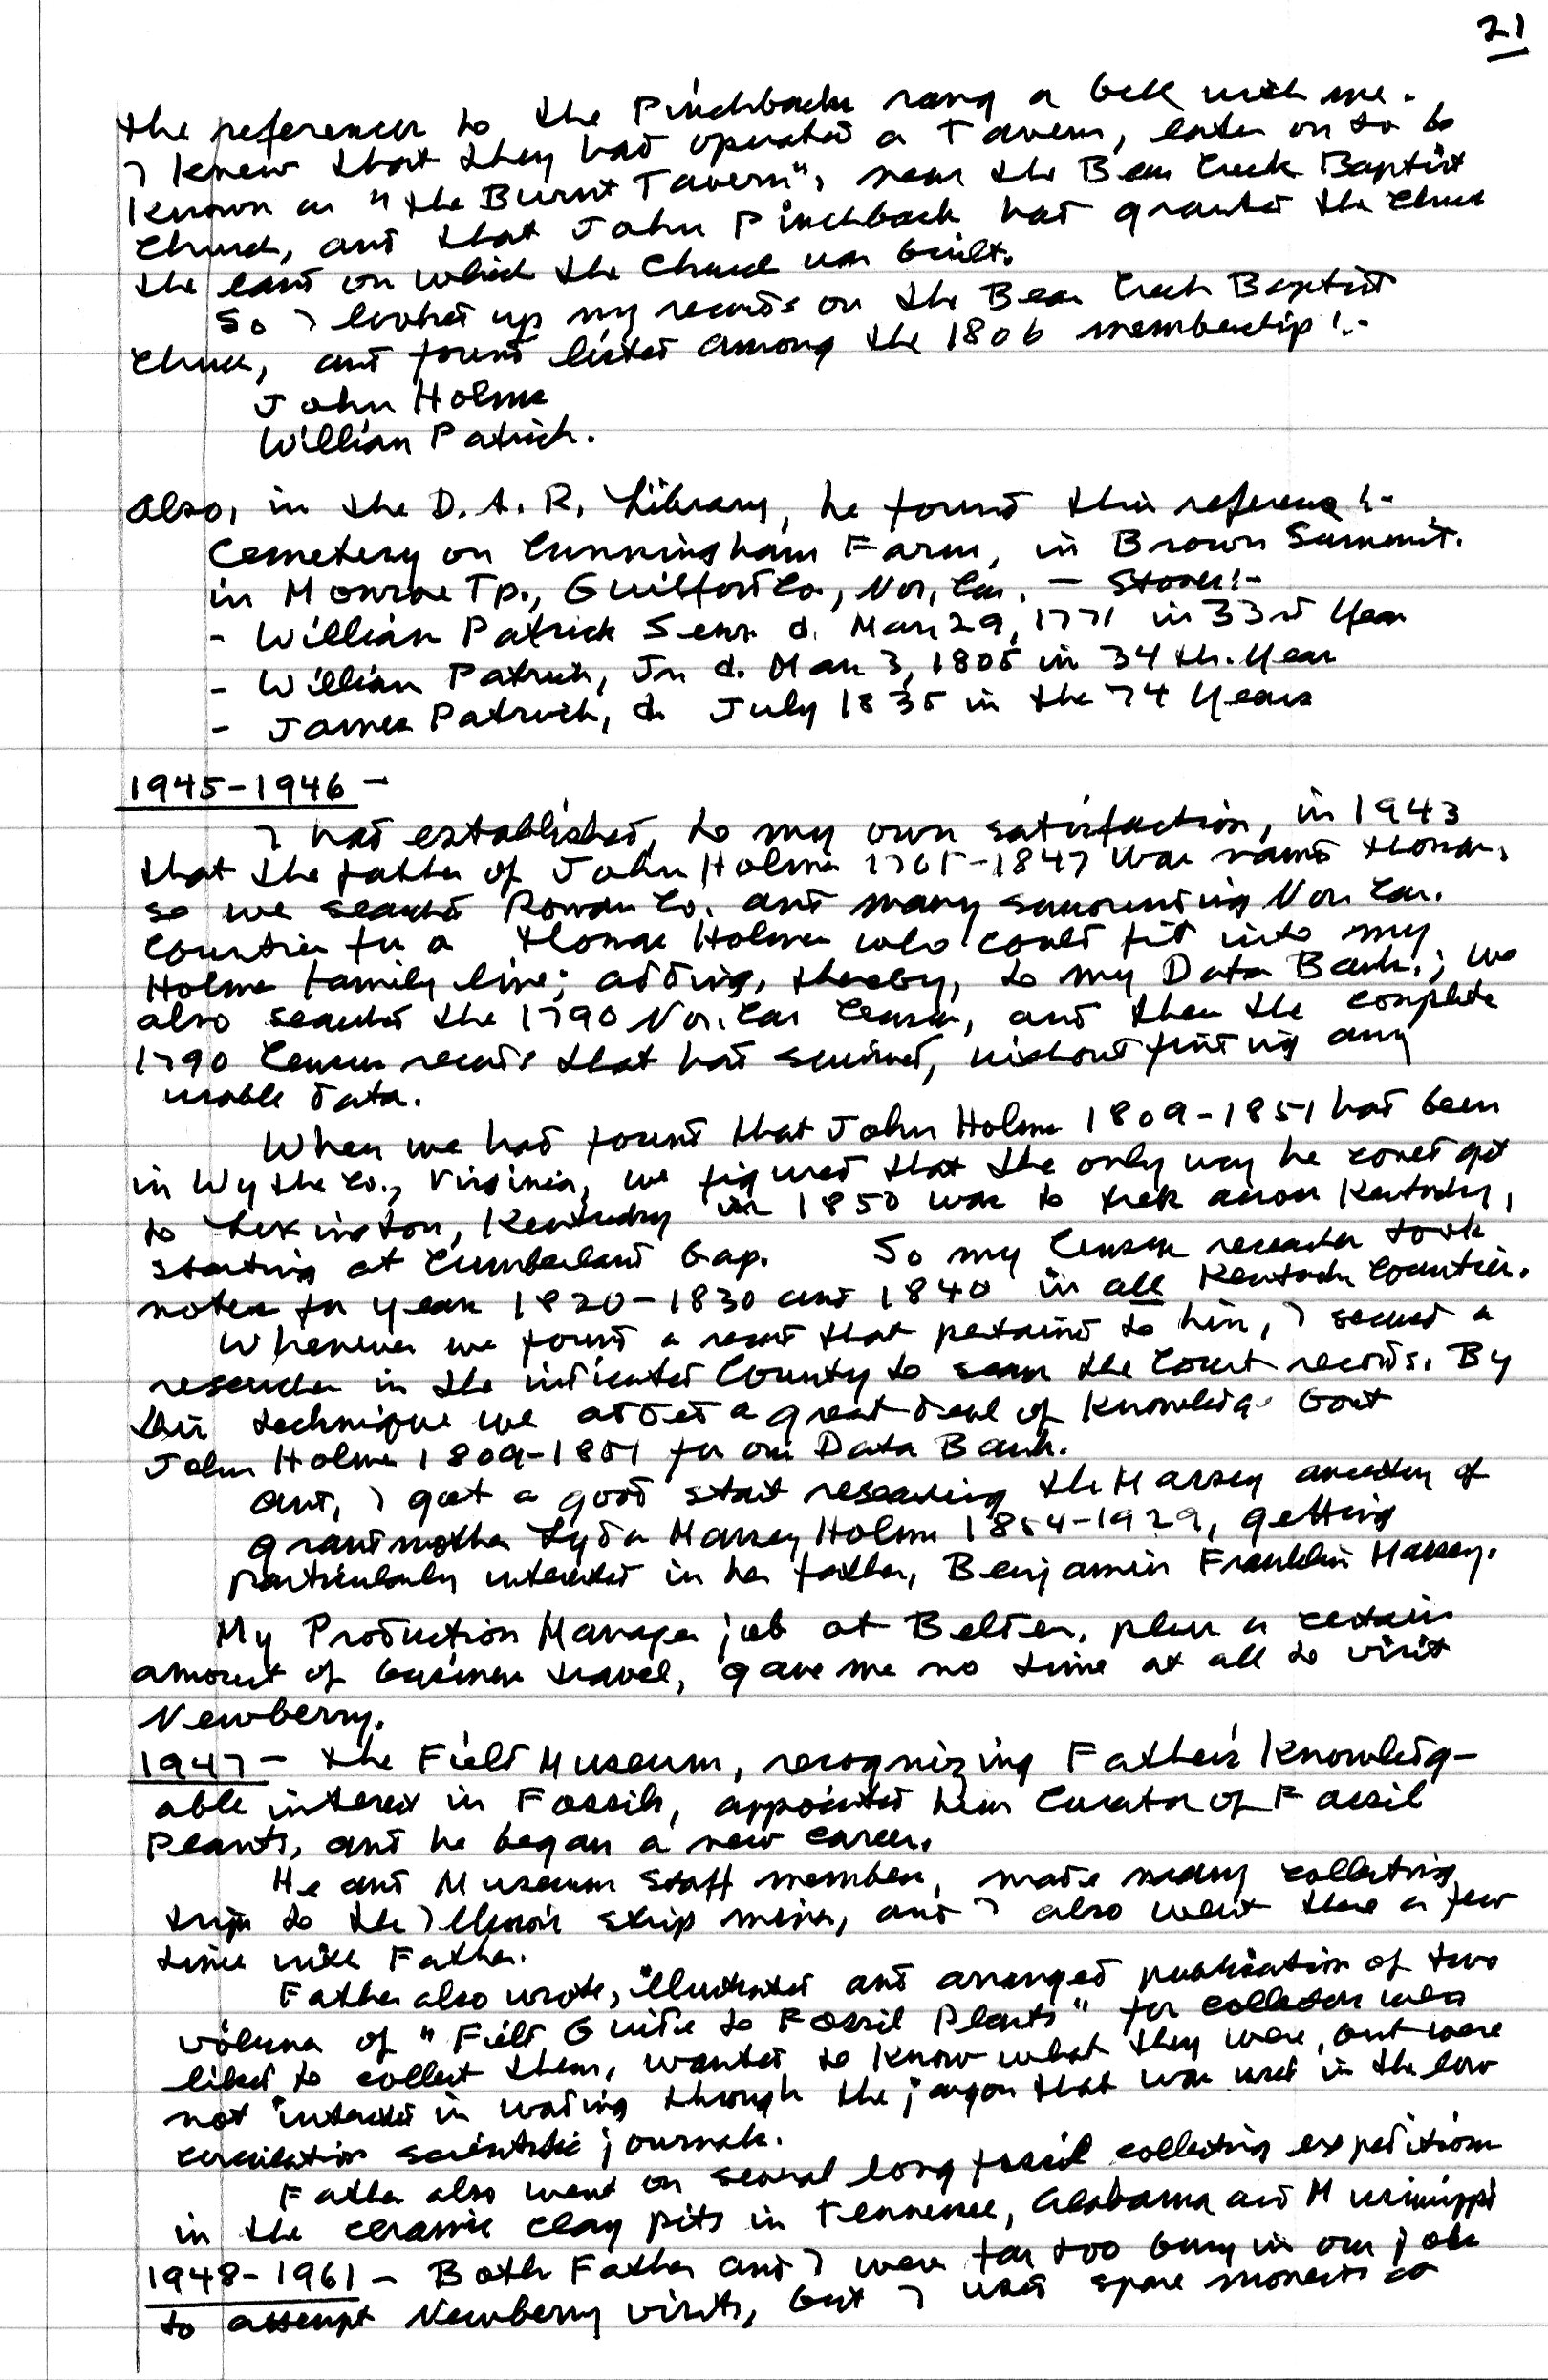 21
the references to the Pinchbacks rang a bell with me.
I knew that they had operated a Tavern, later on to be
known as "the Burnt Tavern", near the Bear Creek Baptist
Church, and that John Pinchback had granted the Church
the land on which the Church was built.
So I looked up my records on the Bear Creek Baptist
Church, and found listed among the 1806 membership:-
John Holmes
William Patrick.
Also, in the D.A.R. Library, he found this reference:-
Cemetery on Cunningham Farm, in Brown Summit.
in Monroe Tp., Guilford Co, Nor. Car. - Stones:-
- William Patrick Senr. d. Mar 29, 1771 in 33rd Year
- William Patrick, Jr. d. Mar 3, 1805 in 34th. Year
- James Patrick, d. July 1835 in the 74 Years
1945-1946 -
I had established, to my own satisfaction, in 1943
that the father of John Holmes 1765-1847 was named Thomas,
so we searched Rowan Co. and many surrounding Nor. Car.
Counties for a Thomas Holmes who could fit into my
Holmes family line; adding, thereby, to my Data Bank.; we
also searched the 1790 Nor. Car Census, and then the complete
1790 Census records that had survived, without finding any
usable data.
When we had found that John Holmes 1809-1851 had been
in Wythe Co., Virginia, we figured that the only way he could get
to Lexington, Kentucky in 1850 was to trek across Kentucky,
starting at Cumberland Gap. So my Census researcher took
notes for years 1820-1830 and 1840 in all Kentucky Counties.
Whenever we found a record that pertained to him, I secured a
researcher in the indicated County to scan the Court records. By
this technique we added a great deal of knowledge bout
John Holmes 1809-1851 for our Data Bank.
And, I got a good start researching the Massey ancestry of
grandmother Lyda Massey Holmes 1854-1929, getting
particularly interested in her father, Benjamin Franklin Massey.
My Production Manager job at Belden, plus a certain
amount of business travel, gave me no time at all to visit
Newberry.
1947 - the Field Museum, recognizing Father's knowledg-
able interest in Fossils, appointed him Curator of Fossil
Plants, and he began a new career.
He and Museum Staff members, made many collecting
trips to the Illinois strip mines, and I also went there a few
times with Father.
Father also wrote, illustrated and arranged publication of two
volumes of "Field Guide to Fossil Plants" for collectors who
liked to collect them, wanted to know what they were, but were
not interested in wading through the jargon that was used in the low
circulation scientific journals.
Father also went on several long fossil collecting expeditions
in the ceramic clay pits in Tennessee, Alabama and Mississippi
1948-1961 - Both Father and I were far too busy in our jobs
to attempt Newberry visits, but I used spare moments to